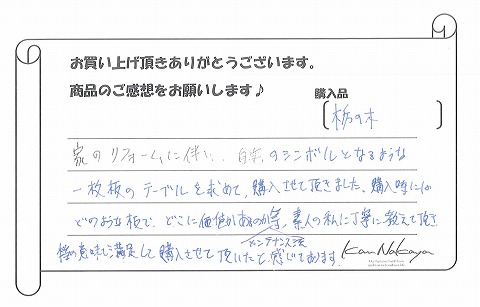 お買い上げ頂きありがとうございます。
商品のご感想をお願いします♪
購入品
栃の木
家のリフォームに伴い、自宅のシンボルとなるような
一枚板のテーブルを求めて、購入させて頂きました。購入時には
どのような板で、どこに価値があるのか等、素人の私に丁寧に教えて頂き
メンテナンス法
意味で満足して購入させて頂いたと感じております。
Kan Nakaya